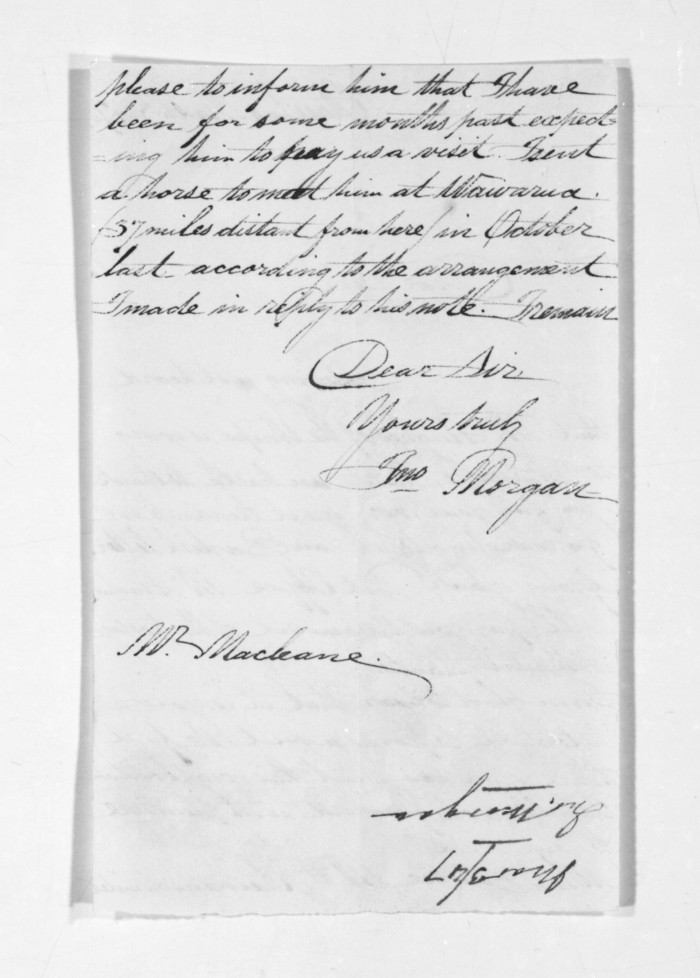 please to inform him that I have
been for some months past expect-
-ing him to pay us a visit. I sent
a horse to meet him at Wawarua.
(57 miles distant from here) in October
last - according to the arrangement
I made in reply to his note. I remain
Dear Sir
Yours truly
Jno Morgan
Mr. Macleane.
Morgan